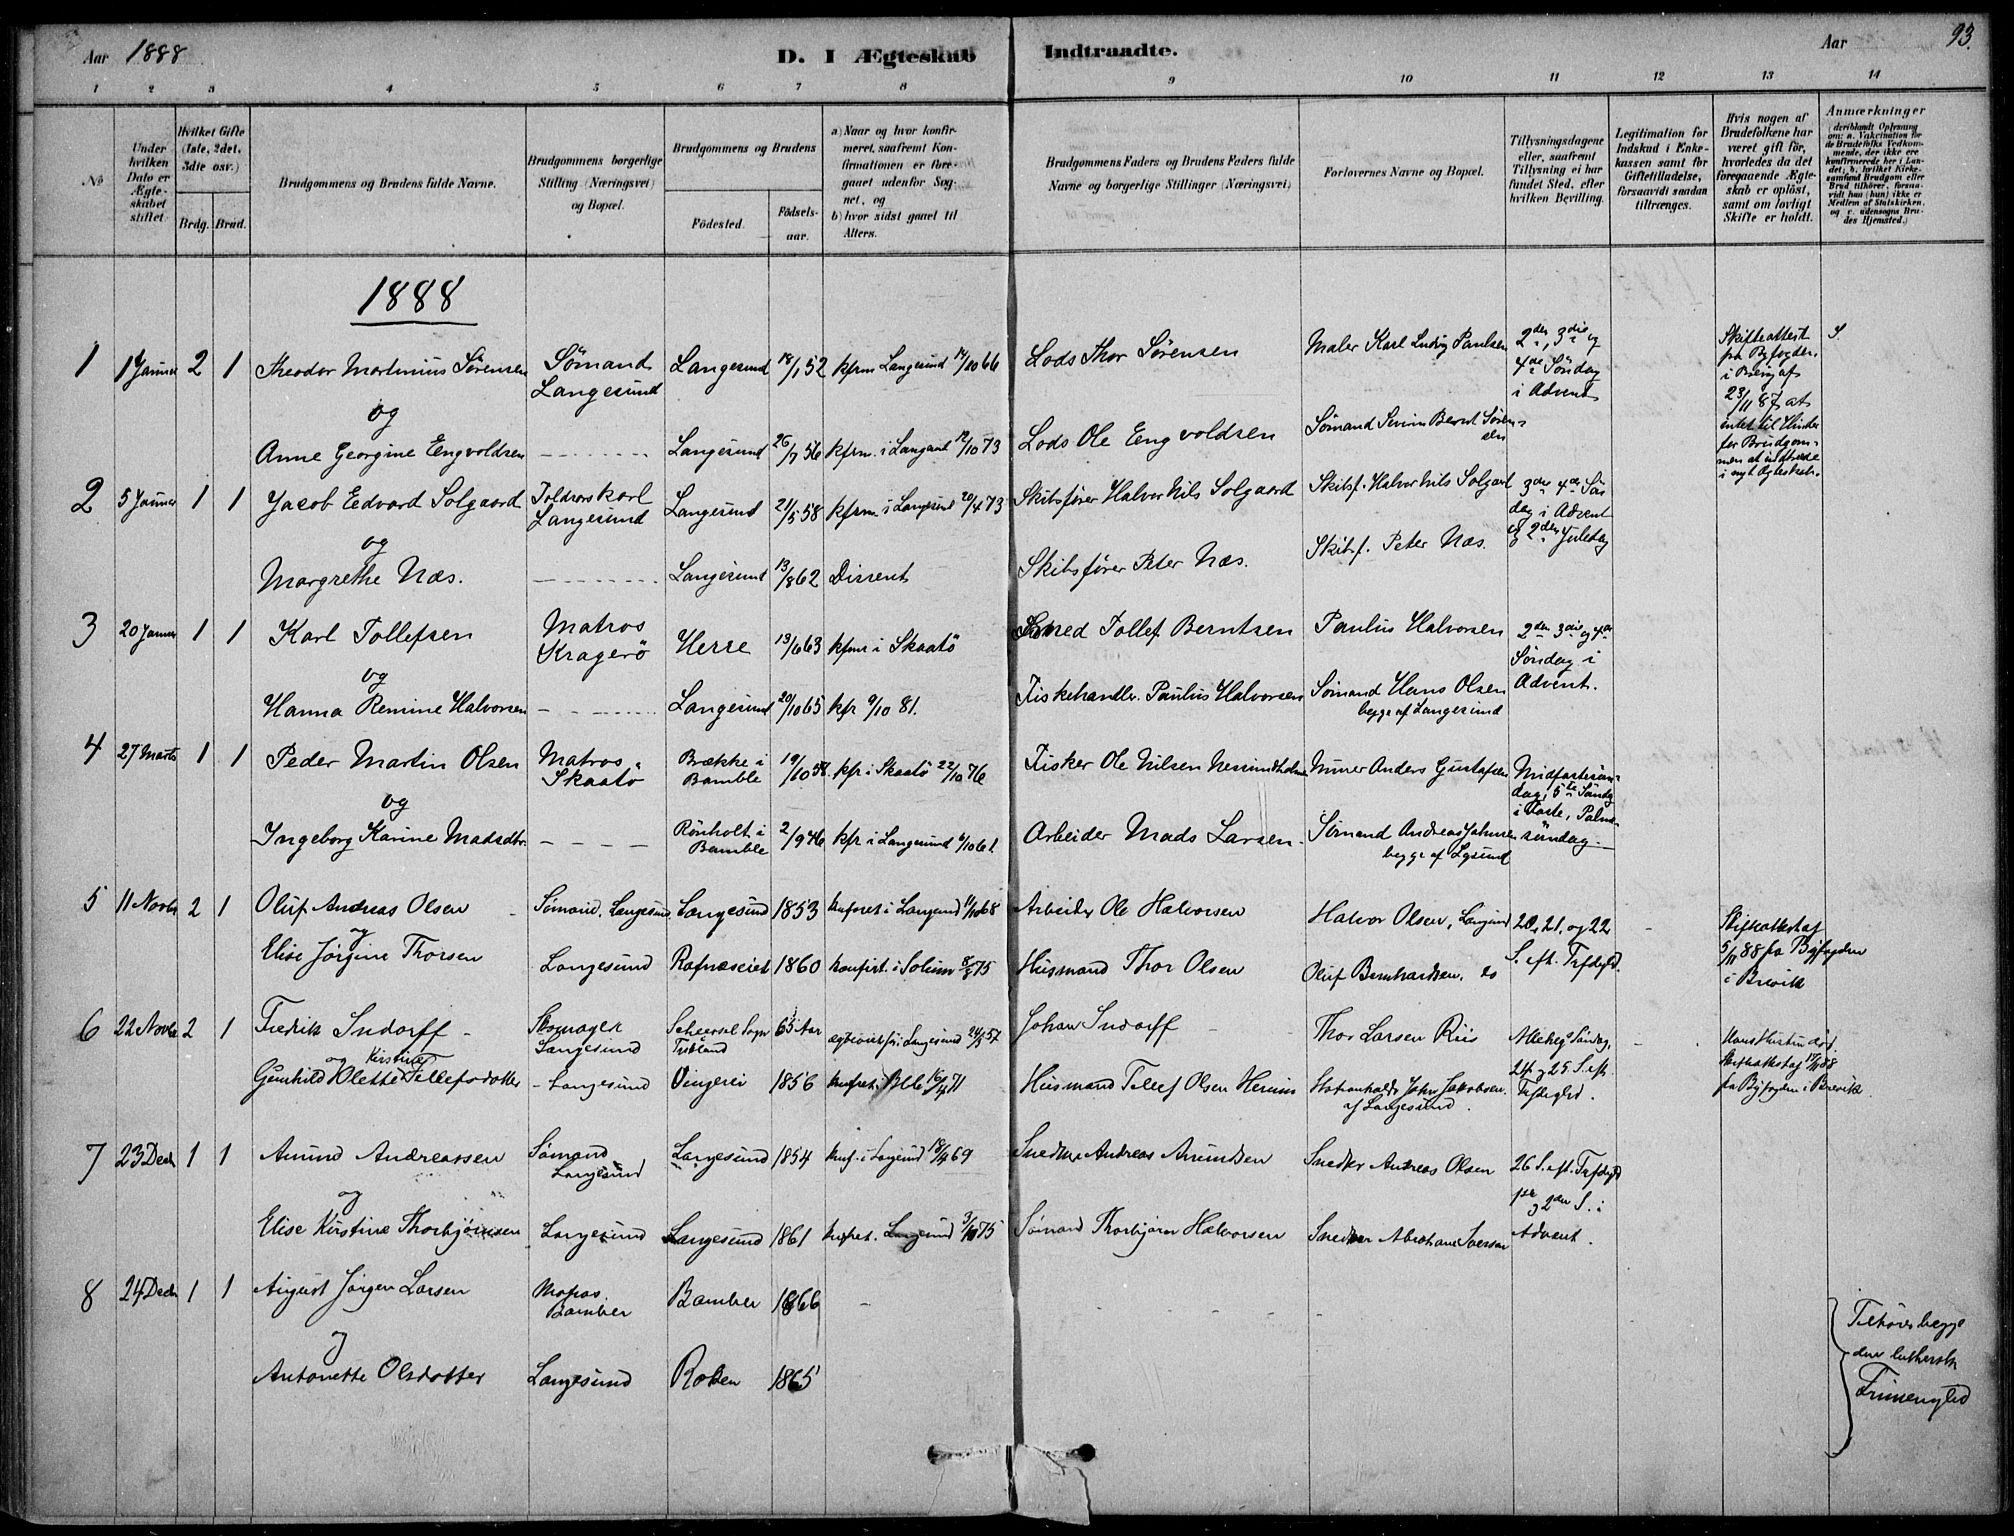 Aar 1888
D. I Ægteskab Indtraadte.
Aar
93.
1 2 3 4 5 6 7 8 9 10 11 12 13 14
No
Under hvilken Dato er Ægteskabet stiftet.
Hvilket Gifte (1ste, 2det, 3die osv.)
Brdg. Brud.
Brudgommens og Brudens fulde Navne.
Brudgommens borgerlige Stilling (Næringsvei) og Bopæl.
Brudgommens og Brudens
Födested.
Födsels-aar.
a) Naar og hvor konfirmeret, saafremt Konfirmationen er foregaaet udenfor Sognet, og
b) hvor sidst gaaet til Alters.
Brudgommens Faders og Brudens Faders fulde Navne og borgerlige Stillinger (Næringsvei)
Forlovernes Navne og Bopæl.
Tillysningsdagene eller, saafremt Tillysning ei har fundet Sted, efter hvilken Bevilling.
Legitimation for Indskud i Enkekassen samt for Giftetilladelse, forsaavidt saadan tiltrænges.
Hvis nogen af Brudefolkene har været gift för, hvorledes da det foregaaende Ægteskab er oplöst, samt om lovligt Skifte er holdt.
Anmærkninger
(deriblandt Oplysning om: a. Vakcination for de Brudefolks Vedkommende, der ikke ere konfirmerede her i Landet; b. hvilket Kirkesamfund Brudgom eller Brud tilhörer, forsaavidt han (hun) ikke er Medlem af Statskirken, og c. udensogns Brudes Hjemsted.)
1888
1 1 Januar 2 1 Theodor Martinius Sörensen Sömand Langesund Langesund 18/1 52 kfrm Langesund 14/10 66 Lods Thor Sörensen Maler Karl Ludvig Paulsen 2den, 3die og 4de Söndag i Advent
Skifteattest fra Byfogden i Brevig af 23/11 87 at intet til Hinder for Brudgommen at indtræde i nyt Ægteskab.
og
Anne Georgine Engvoldsen Langesund 26/7 56 kfrm. i Langesund 12/10 73 Lods Ole Engvoldsen Sömand Bernt Sörensen
2 5 Januar 1 1 Jacob Edvard Solgaard Toldrorskarl Langesund Langesund 21/5 58 kfrm. i Langesund 20/4 73 Skibsförer Halvor Nils Solgaard Skibsf. Halvor Nils Solgard 3die 4de Söndag i Advent og 2den Juledag
og
Margrethe Næs. Langesund 13/8 62 Dissent Skibsförer Peter Næs. Skibsf. Peter Næs.
3 20 Januar 1 1 Karl Tollefsen Matros Kragerö Herre 13/6 63 kfrm i Skaatö Smed Tollef Berntsen Paulus Halvorsen 2den 3die og 4de Söndag i Advent.
og
Hanna Remine Halvorsen Langesund 20/10 65 kfr 9/10 81. Fiskehandler Paulus Halvorsen Sömand Hans Olsen begge af Langesund
4 27 Marts 1 1 Peder Martin Olsen Matros Skaatö Brække i Bamble 19/10 58. kfr i Skaatö 22/10 76 Fisker Ole Nilsen Murer Anders Gustafsen Midfastesöndag, 5te Söndag i Faste, Palmesöndag.
og
Ingeborg Karine Madsdtr. Rönholt i Bamble 2/9 46 kfr i Langesund 6/10 61 Arbeider Mads Larsen Sömand Andreas Johnsen begge af Lgsund
5 11 Novbr 2 1 Oluf Andreas Olsen Sömand, Langesund Langesund 1853 konfret i Langesund 11/10 68 Arbeider Ole Halvorsen Halvor Olsen, Langesund 20, 21. og 22 S. eft. Trefoldighed
Skifteattest af 5/11 88 fra Byfogden i Brevik
og
Elise Jörgine Thorsen Langesund Rafnæseiet 1860 konfirt. i Solum 8/8 75 Husmand Thor Olsen Oluf Bernhardsen, do
6 22 Novbr 2 1 Fredrik Indorff Skomager Langesund Sogn Tydskland 65 Aar i Langesund 24/5 57 Johan Indorff Thor Larsen Riis Allehelg. Söndag, 24 og 25 S. eft. Trefoldighed.
Hans Hustru död Skifteattest af 17/11 88 fra Byfogden i Brevik
og Kirstine
Gunhild Olette Tellefsdotter Langesund Vingerei 1856 konfret. 16/4 71 Husmand Tellef Olsen John Jakobsen. af Langesund.
7 23 Decbr 1 1 Amund Andreassen Sömand Langesund Langesund 1854 konf. i Langesund 18/4 69 Snedker Andreas Amundsen Snedker Andreas Olsen 26 S. eft. Trefoldighed 1ste og 2den S. i Advent.
og
Elise Kirstine Thorbjörnsen Langesund Langesund 1861 konfret. Langesund 3/10 75 Sömand Thorbjörn Halvorsen Snedker Abraham Iversen
8 24 Decbr 1 1 August Jörgen Larsen Matros. Bamber Bamber 1866
og
Antonette Olsdotter Langesund Roben 1865
Tilhörer begge den lutherske Frimenighed